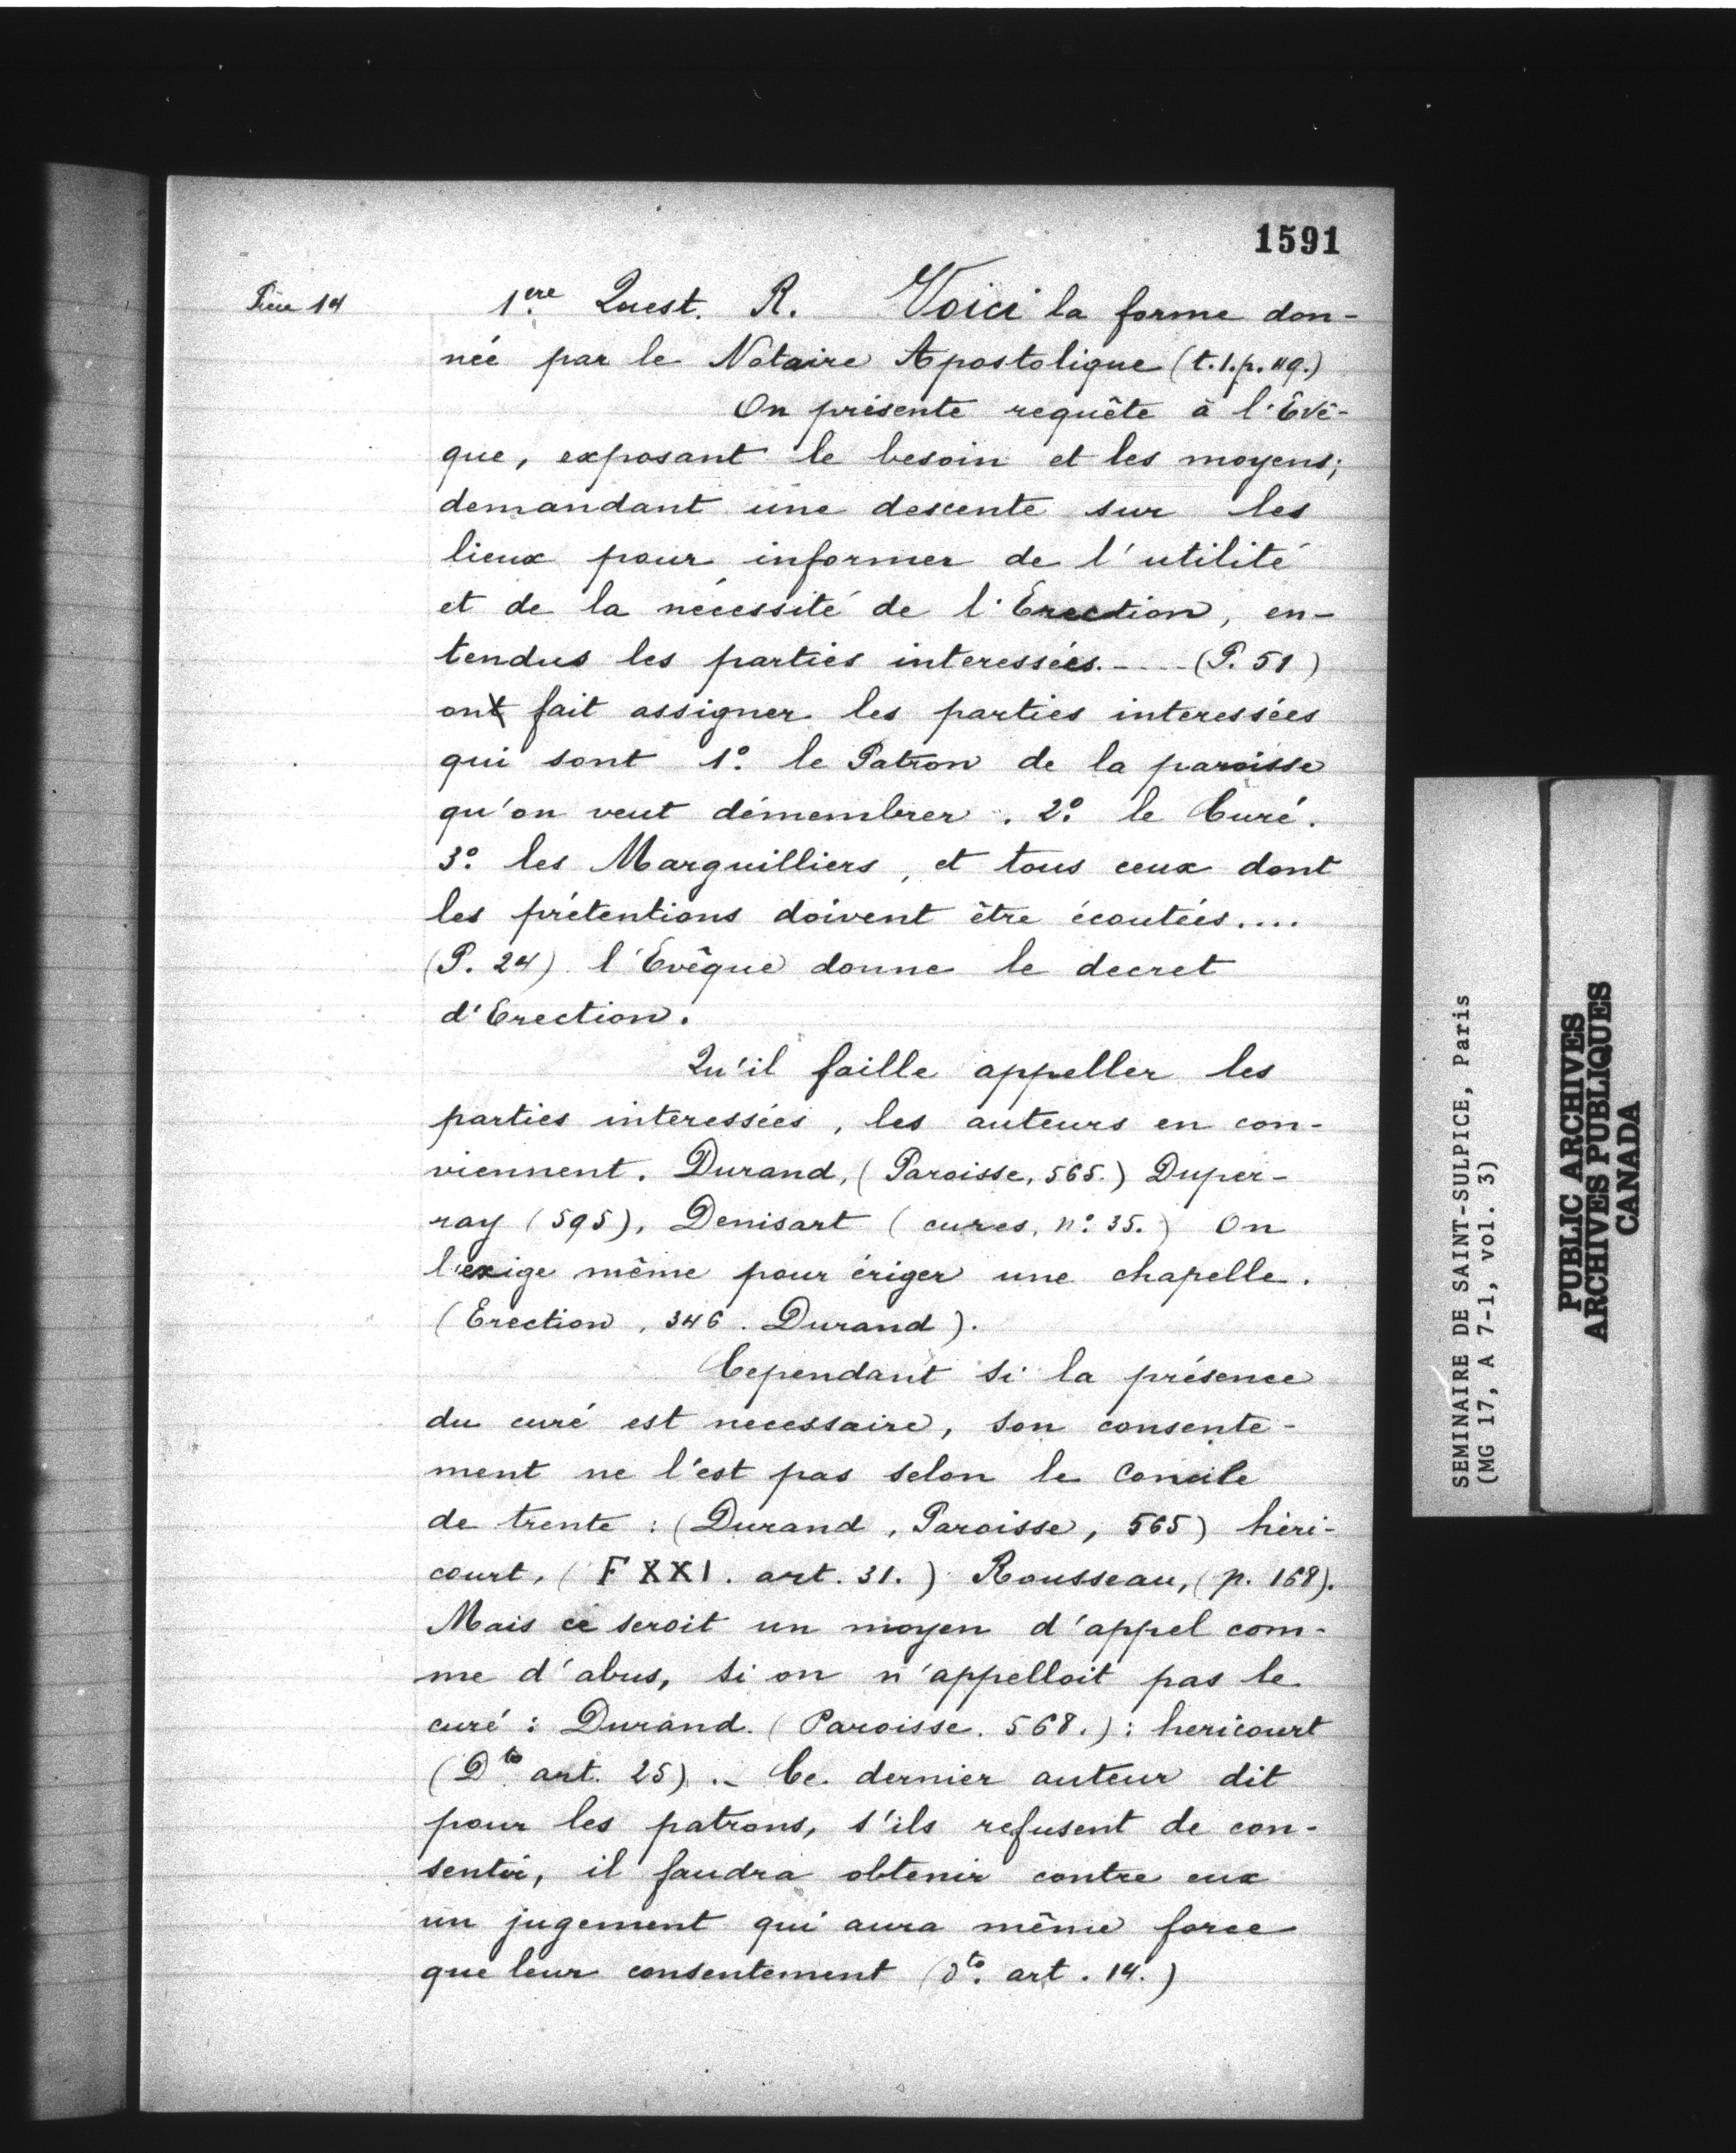 1591
Piece 14
1.ere Quest. R. Voici la forme don-
née par le Notaire Apostolique (t.1.p.49.)
On présente requête à l'Évê-
que, exposant le besoin et les moyens;
demandant une descente sur les
lieux pour informer de l'utilité
et de la nécessité de l'Erection, en-
tendus les parties interessées.---- (P. 51)
ont fait assigner les parties interessées
qui sont 1.° le Patron de la paroisse
qu'on veut démembrer. 2.° le Curé.
3.° les Marguilliers, et tous ceux dont
les prétentions doivent être écoutées....
(P. 24) l'Evêque donne le decret
d'Erection.
Qu'il faille appeller les
parties interessées, les auteurs en con-
viennent. Durand, (Paroisse, 565.) Duper-
ray (595), Denisart (cures, n.° 35.) On
l'exige même pour ériger une chapelle.
(Erection, 346. Durand).
Cependant si la présence
du curé est necessaire, son consente-
ment ne l'est pas selon le Concile
de trente : (Durand, Paroisse, 565) héri-
court, (F XXI. art. 31.) Rousseau, (p. 168).
Mais ce seroit un moyen d'appel com-
me d'abus, si on n'appelloit pas le
curé : Durand. (Paroisse. 568.) : hericourt
(Dto art. 25).- Ce dernier auteur dit
pour les patrons, s'ils refusent de con-
sentir, il faudra obtenir contre eux
un jugement qui aura même force
que leur consentement (dto. art. 14.)
SEMINAIRE DE SAINT-SULPICE, Paris
(MG 17, A 7-1, vol. 3)
PUBLIC ARCHIVES
ARCHIVES PUBLIQUES
CANADA